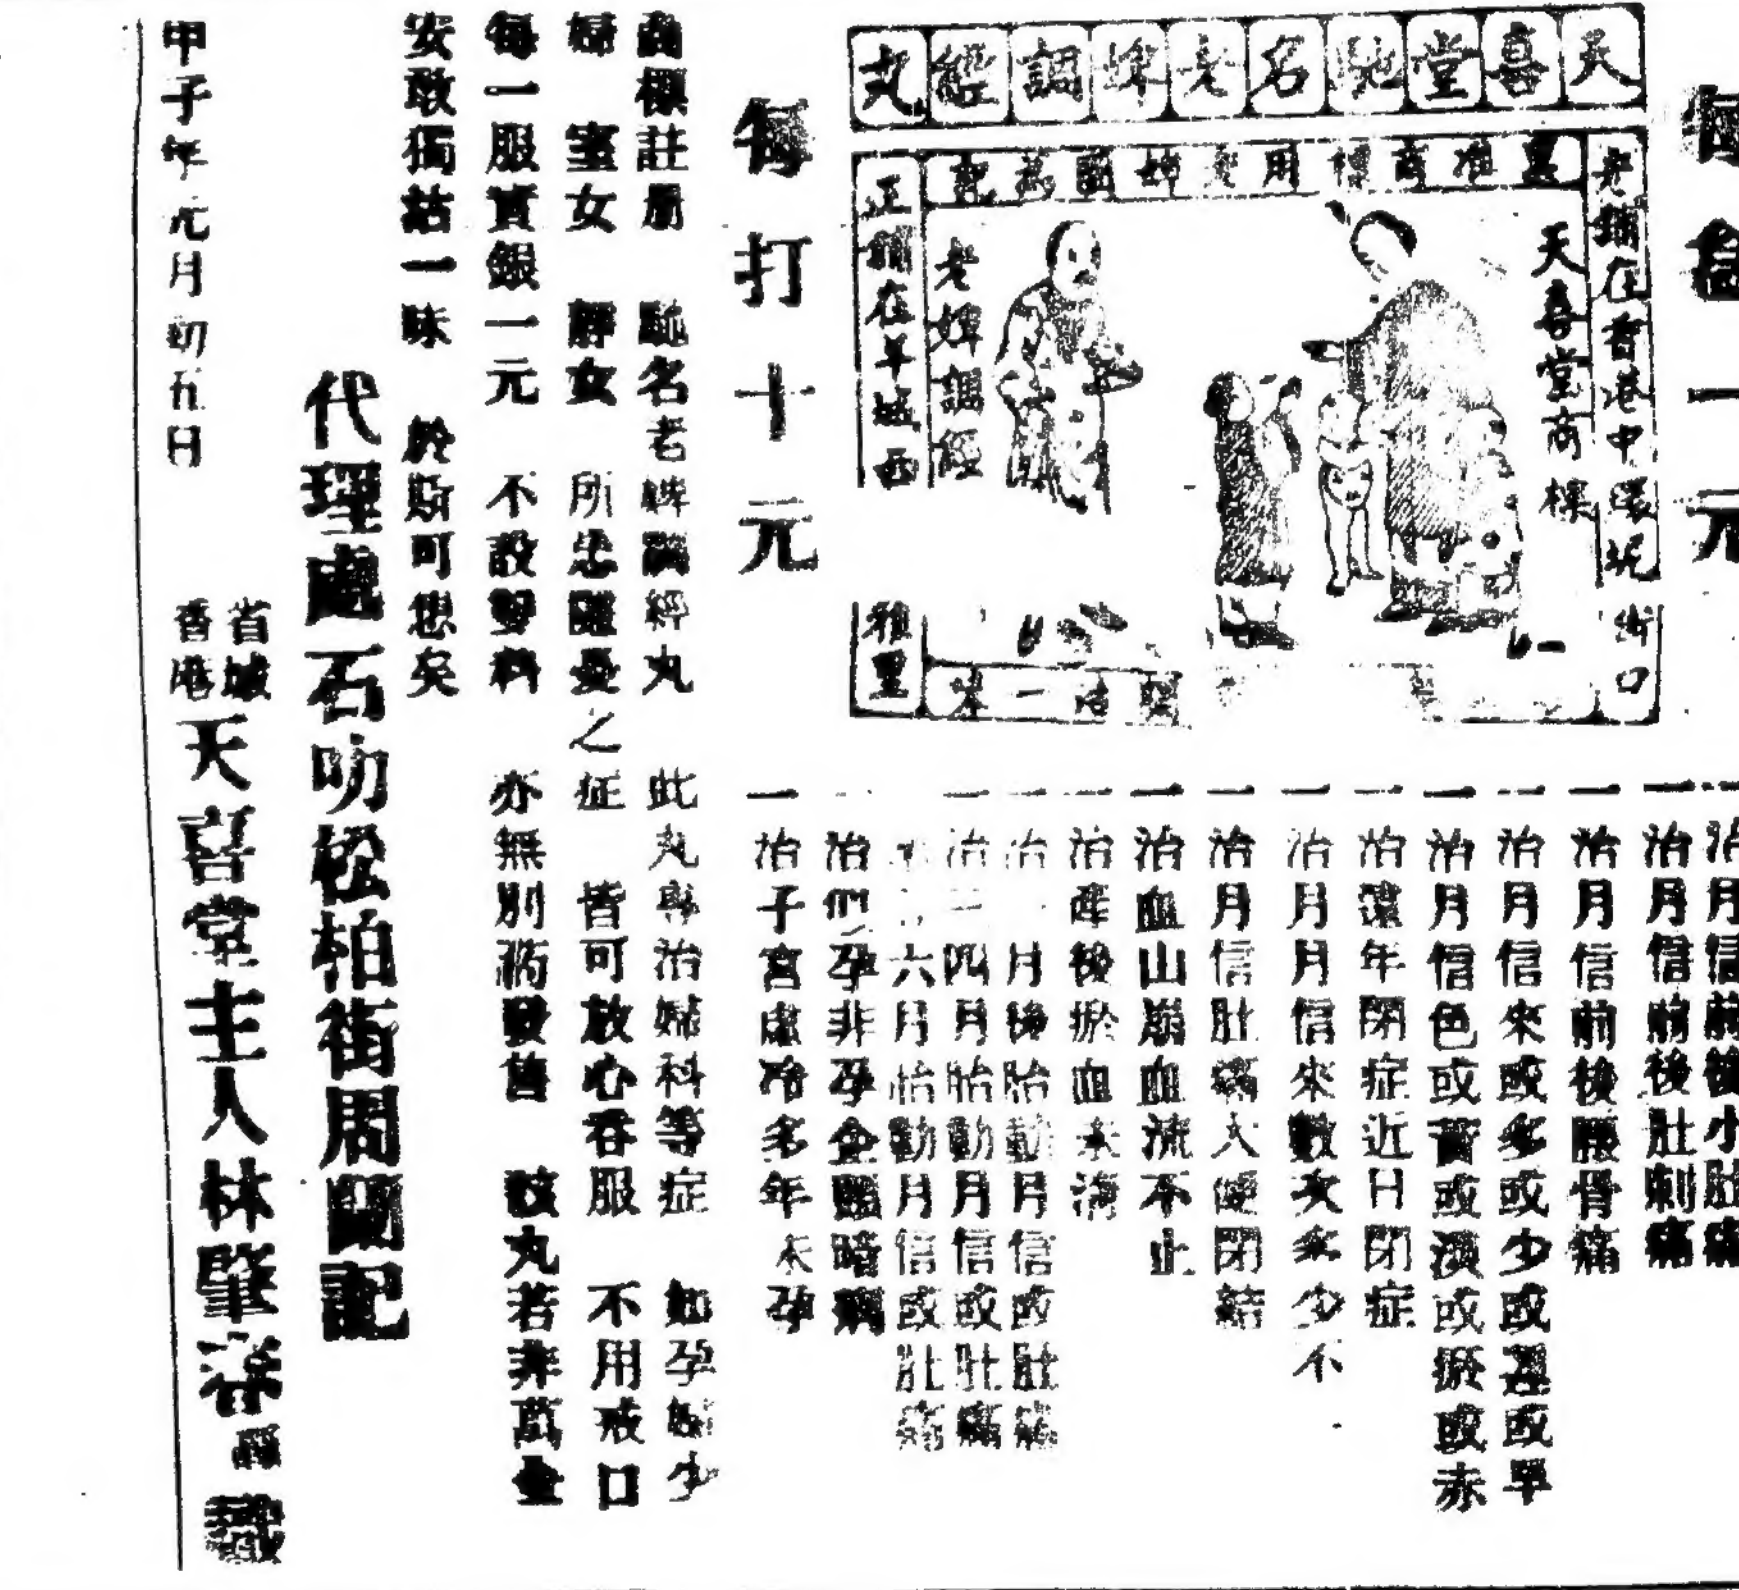 天喜堂馳名老婢調經丸
每盒一元
老鋪在香港中環坭街口
天喜堂商標
憲准商標用老婢圖為記
老婢調經
正鋪在羊城西
雅里
每打十元
治月信前後小肚痛
一治月信前後肚刺痛
一治月信前後腰骨痛
一治月信來或多或少或遲或早
一治月信色或黃或淡或瘀或赤
一治遠年閉症近日閉症
一治月月信來數次多少不
一治月信肚痛大便閉結
一治血山崩血流不止
治產後瘀血未清
一治 月後胎動月信或肚痛
一治三四月胎動月信或肚痛
六月胎動月信或肚痛
治們孕非孕血暗病
一治子宮虛冷多年未孕
商標註册 馳名老婢調經丸 此丸專治婦科等症 如孕婦少
婦 室女 婢女 所患隱憂之症 皆可放心吞服 不用戒口
每一服實銀一元 不設雙料 亦無別藥發售 該丸若非萬全
安敢獨沽一味 於斯可想矣
代理處石叻松柏街周蘭記
省城
香港
天喜堂主人林肇容謹識
甲子年元月初五日